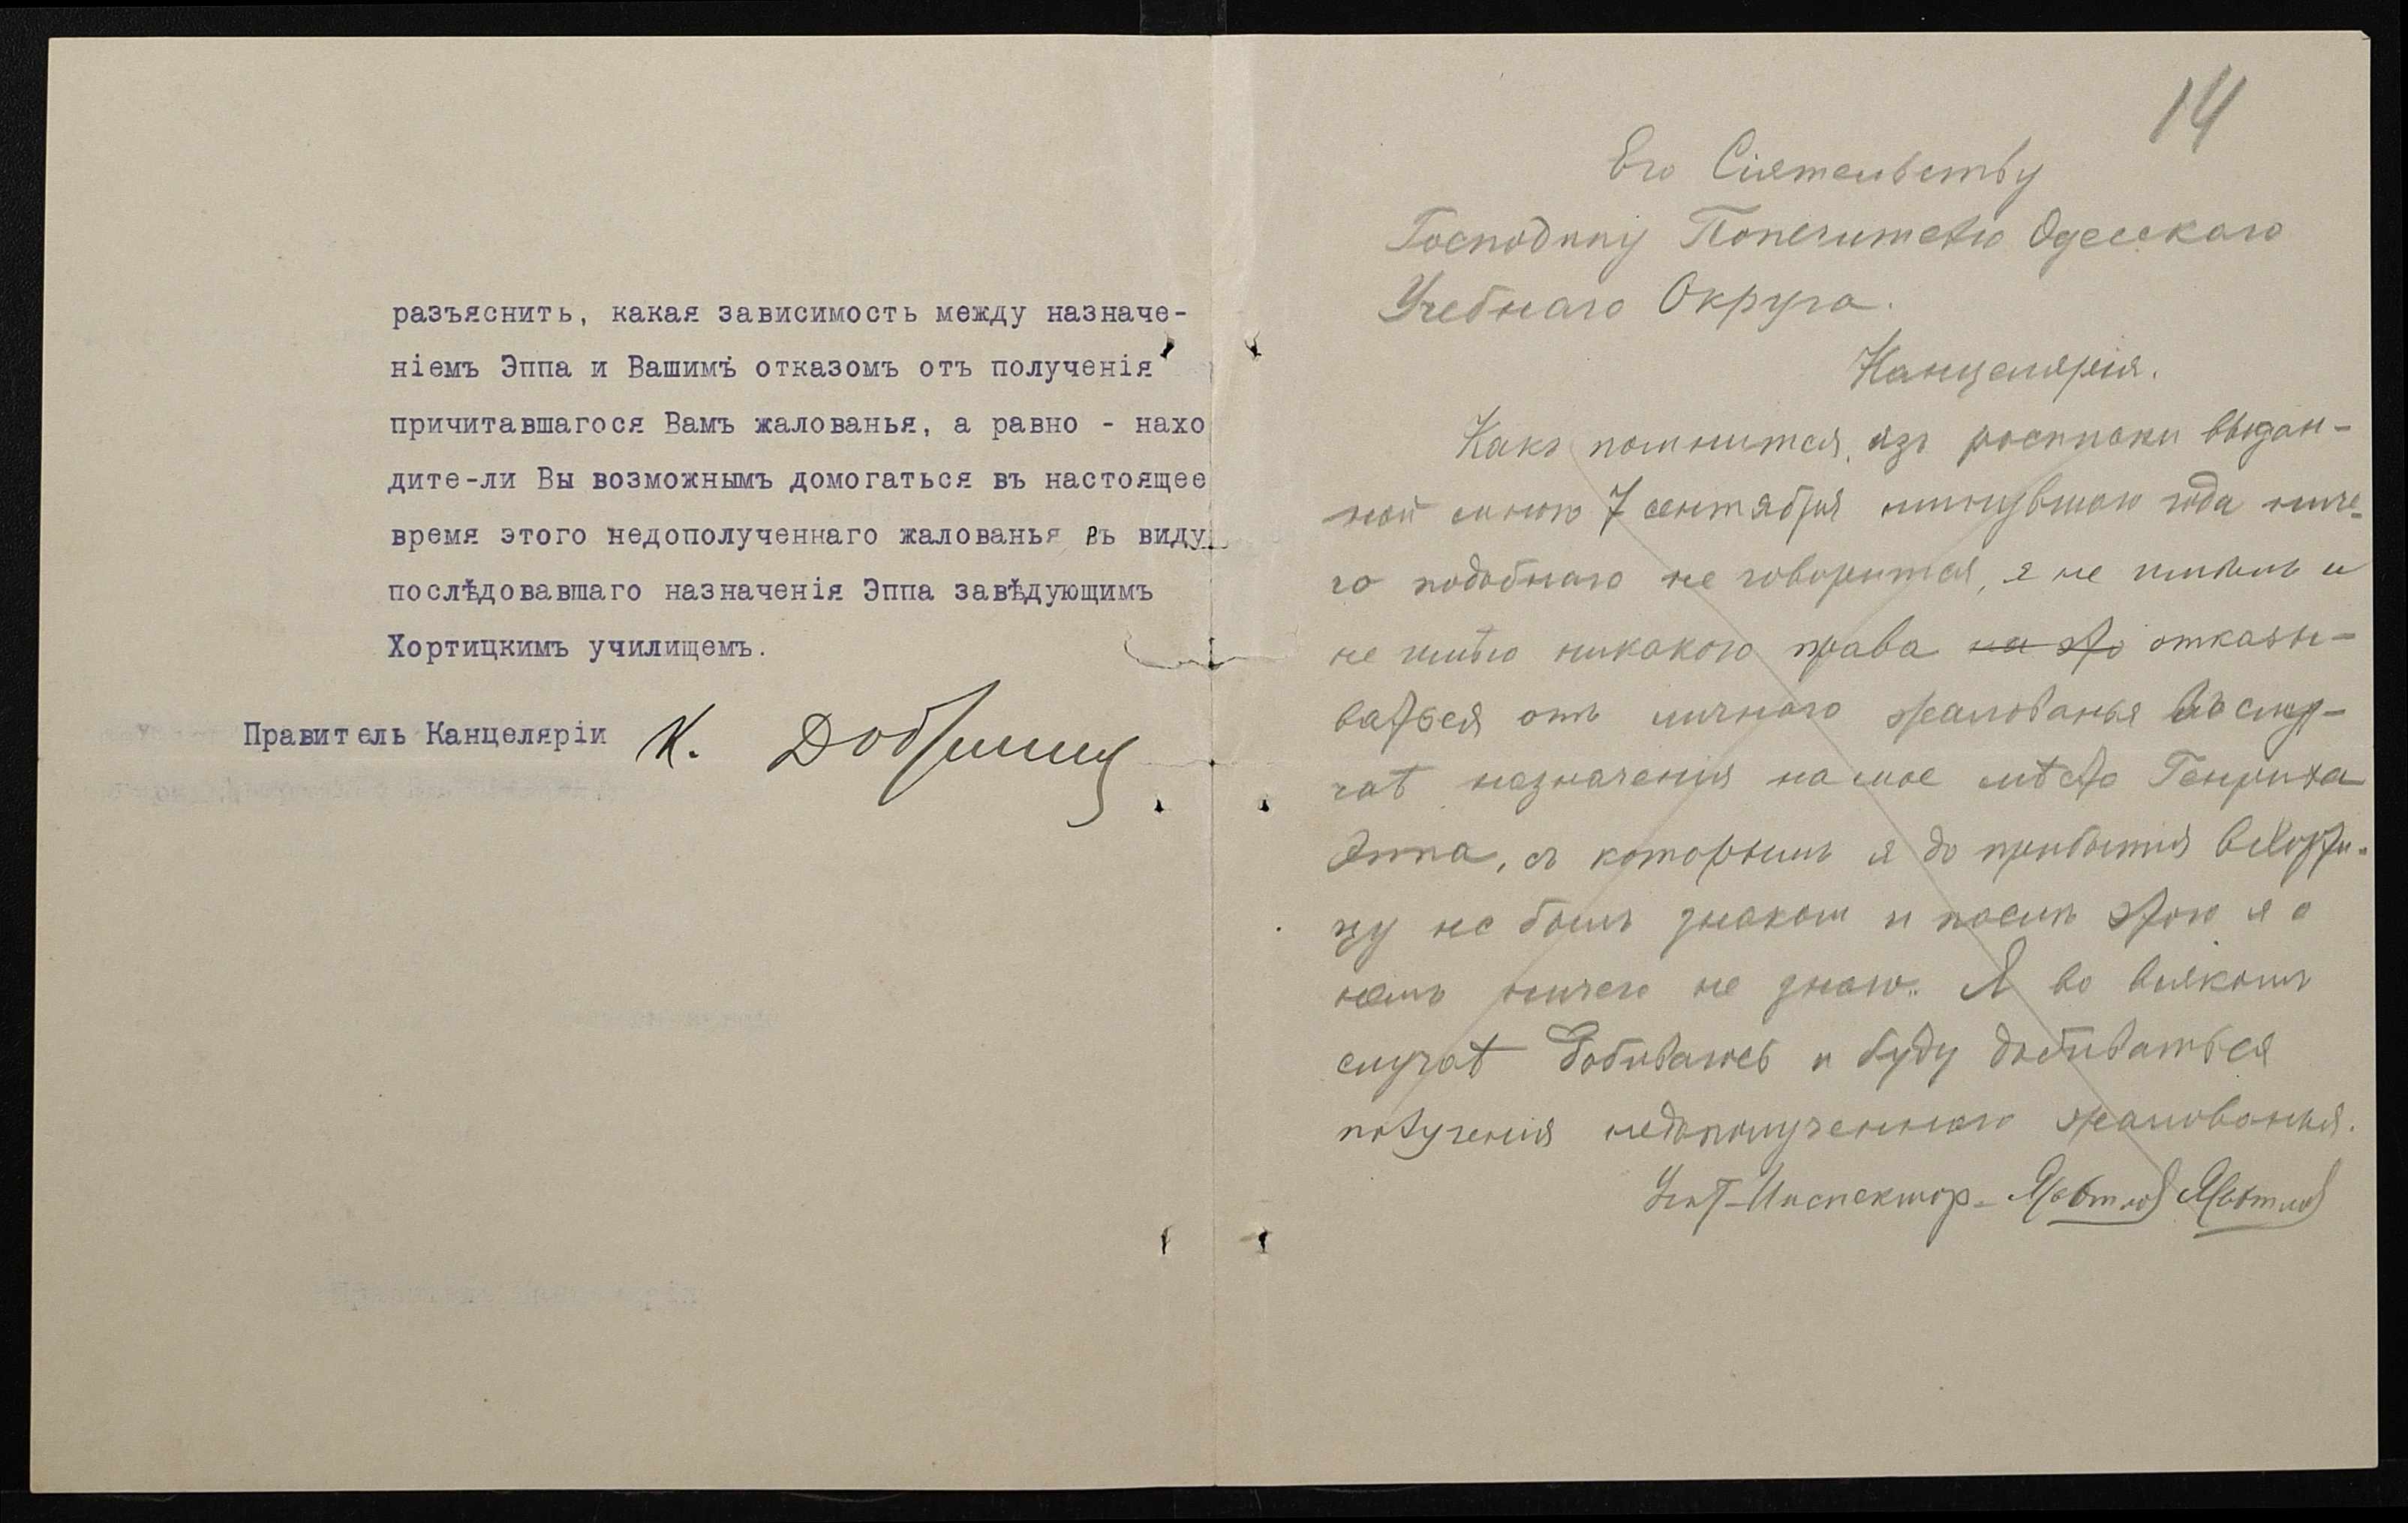 разъяснить, какая зависимость между назначе-
ніемъ Эппа и Вашимъ отказомъ отъ полученія
причитавшагося Вамъ жалованья, а равно - нахо
дите-ли Вы возможнымъ домогаться въ настоящее
время этого недополученнаго жалованья въ виду
послѣдовавшаго назначенія Эппа завѣдующимъ
Хортицкимъ училищемъ.
Правитель Канцеляріи К.
14
Его Сіятельству
Господину Попечителю Одесскаго
Учебнаго Округа.
Канцелярія.
Какъ помнится, изъ росписки выдан-
ной мною 7 сентября минувшаго года ниче-
го подобнаго не говорится, я не имѣлъ и
не имѣю никакого права на это отказы-
ваться отъ личнаго жалованья въ слу-
чаѣ назначенія на мое мѣсто Генриха
Эппа, съ которымъ я до прибытія въ Хорти-
цу не былъ знакомъ и послѣ этого я о
немъ ничего не знаю. Я во всякомъ
случаѣ добиваюсь и буду добиваться
полученія недополученнаго жалованья.
Учит-Инспекторъ